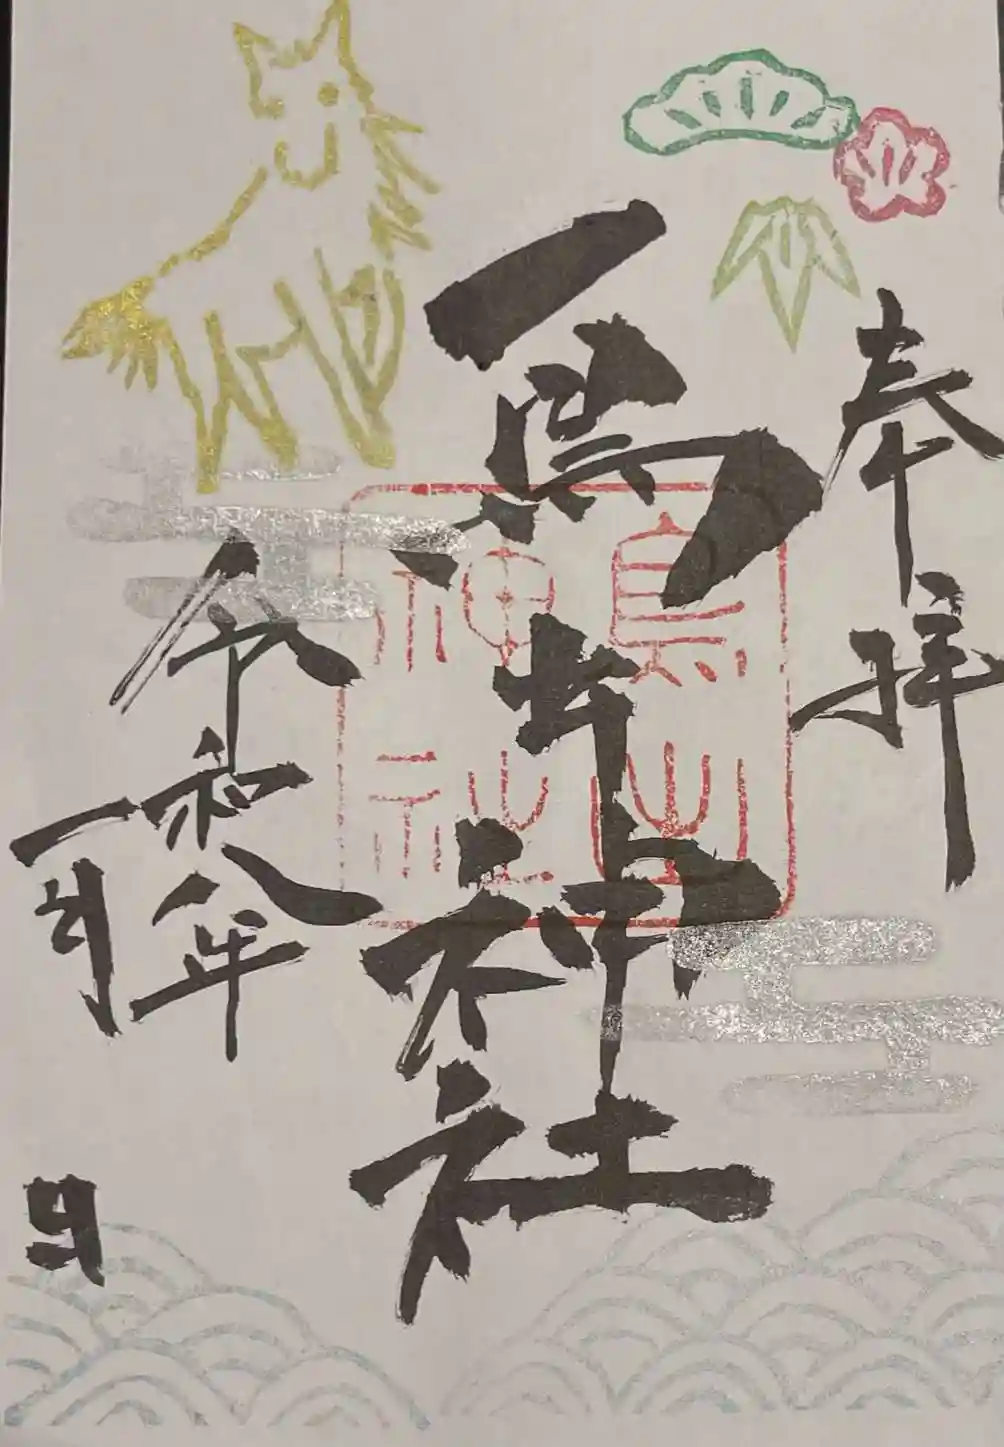 奉拝
鳥出神社
鳥出
神社
令和八年
一月 日